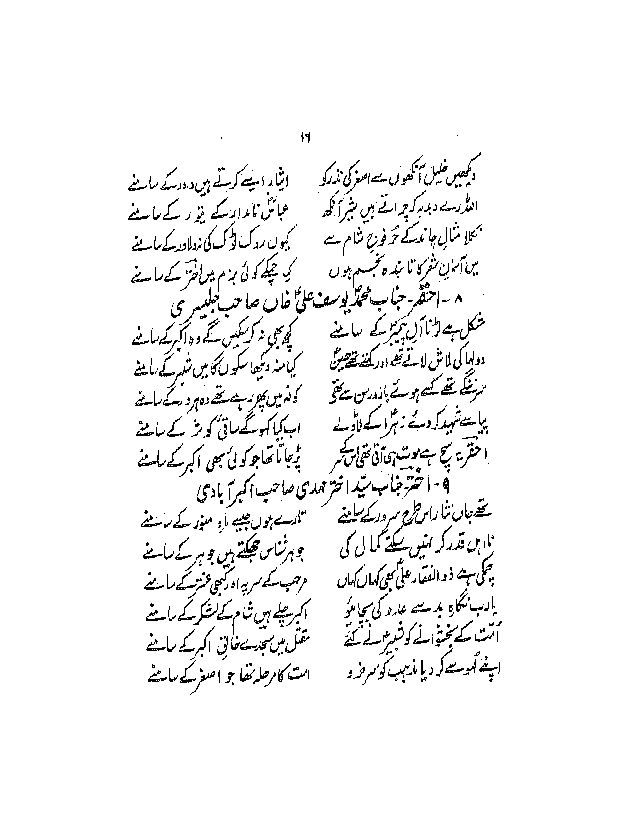 ۱۶
دیکھیں خلیل آنکھوں سے اصغر کی نذر کو ایثار ایسے کرتے ہیں داور کے سامنے
اللہ رے دبدبہ کہ چراتے ہیں شیر آنکھ عباسؑ نامدار کے تیور کے سامنے
نکلا مثال چاند کے حُر فوج شام سے کیوں روک ٹوک کی نہ دلاور کے سامنے
میں آسمان شعر کا تابندہ نجم ہوں کیا چمکے کوئی بزم میں اختر کے سامنے
۸ - احقر - جناب محمد یوسف علی خاں صاحب جلیسری
مشکل ہے لڑنا آل پیمبرؐ کے سامنے کچھ بھی نہ کر سکیں گے وہ اکبر کے سامنے
دولہا کی لاش لاتے تھے اور کہتے تھے حسینؑ کیا منہ دکھا سکوں گا میں شبر کے سامنے
سر ننگے تھے کسے ہوئے بازو رسن سے تھے کوفہ میں پھر رہے تھے وہ ہر در کے سامنے
پیاسے شہید کر دئے زہراؑ کے لاڈلے اب کیا کہو گے ساقی کوثر کے سامنے
احقر یہ سچ ہے موت ہی آتی تھی اس کے سر پڑ جاتا تھا جو کوئی بھی اکبر کے سامنے
۹ - اختر - جناب سید اختر مہدی صاحب اکبر آبادی
تھے جاں نثار اس طرح سرور کے سامنے تارے ہوں جیسے ماہ منور کے سامنے
نااہل قدر کر نہیں سکتے کمال کی جوہر شناس جھکتے ہیں جوہر کے سامنے
چمکی ہے ذوالفقار علیؑ بھی کہاں کہاں مرحب کے سر پہ اور کبھی عنتر کے سامنے
یارب نگاہ بد سے عدو کی بچائیو اکبر چلے ہیں شام کے لشکر کے سامنے
امت کے بخشوانے کو شبیرؑ نے کئے مقتل میں سجدے خالق اکبر کے سامنے
اپنے لہو سے کر دیا مذہب کو سرخرو امت کا مرحلہ تھا جو اصغر کے سامنے